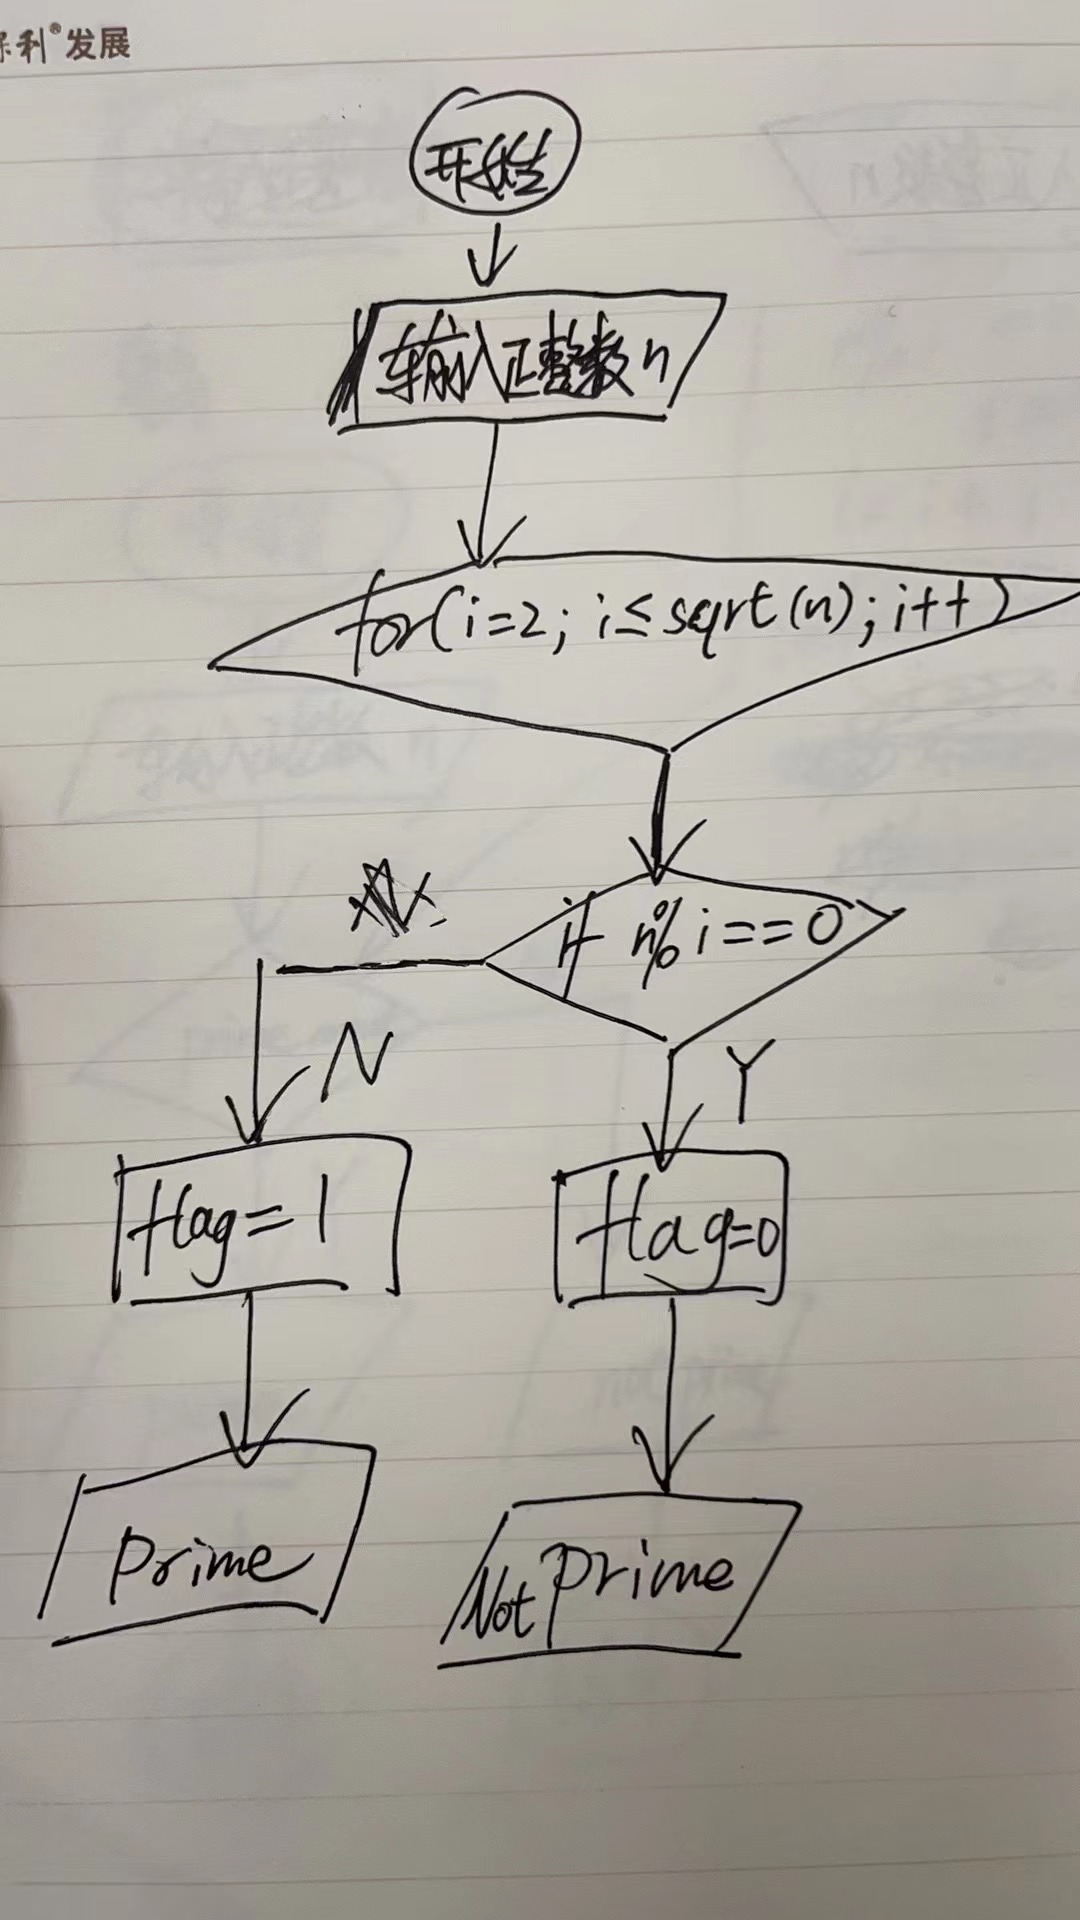 保利®发展
开始
输入正整数 n
for(i=2; i≤sqrt(n); i++)
if n%i==0
N
Y
flag=1
flag=0
Prime
Not Prime